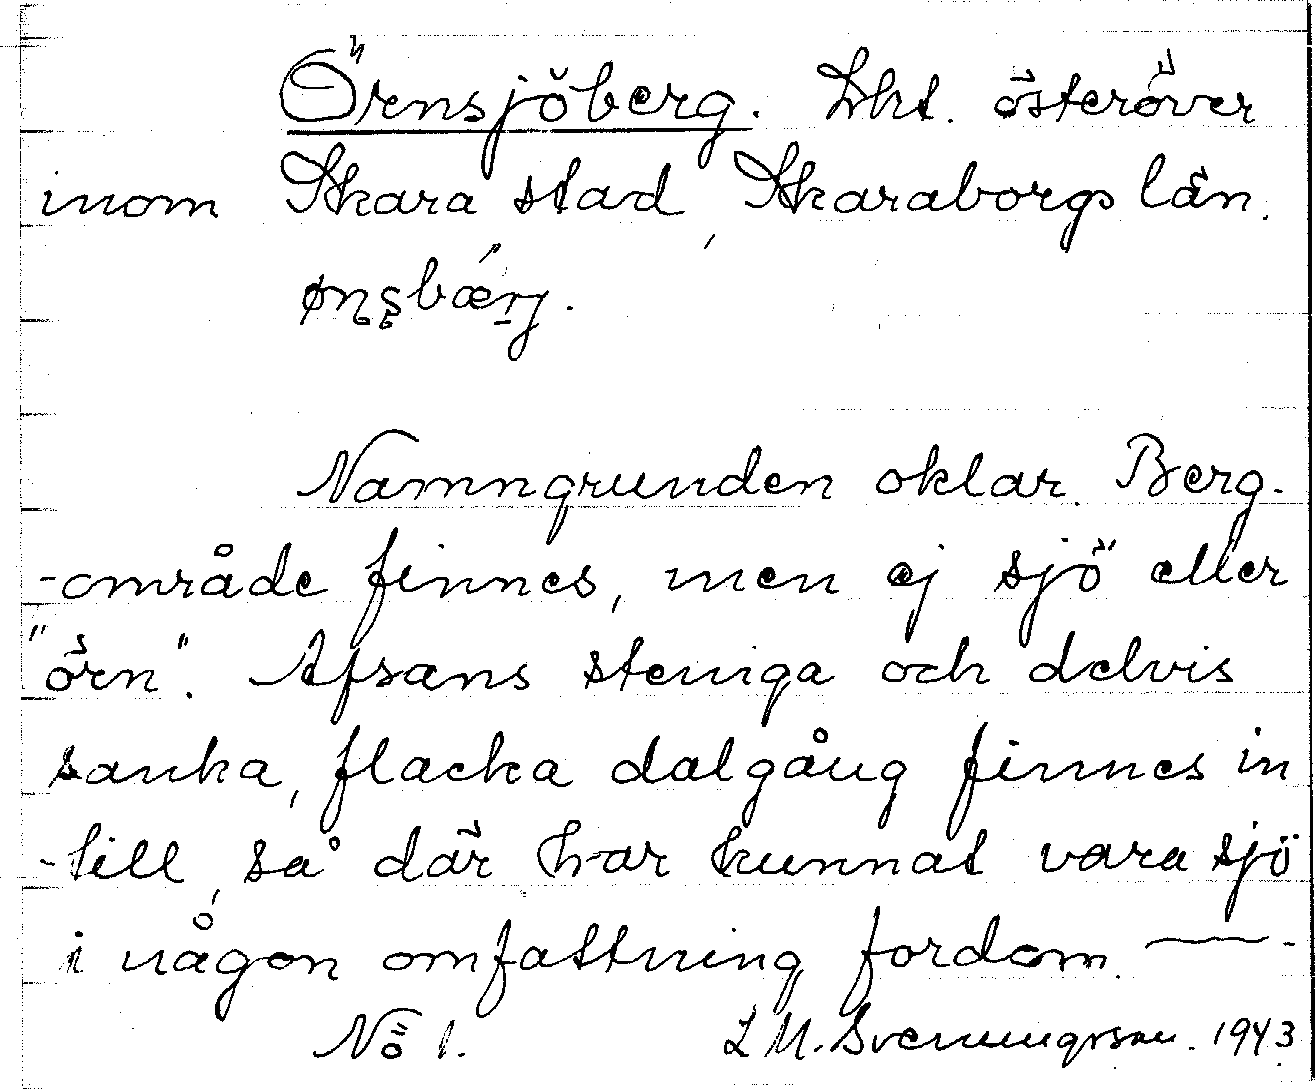 Örnsjöberg. Lht. österöver
inom Skara stad, Skaraborgs län.
Namngrunden oklar. Berg-
-område finnes, men ej sjö eller
"örn". Afsans steniga och delvis
sanka, flacka dalgång finnes in
-till, så där har kunnat vara sjö
i någon omfattning fordom. —
No 1. L M. Svenungsson. 1943.